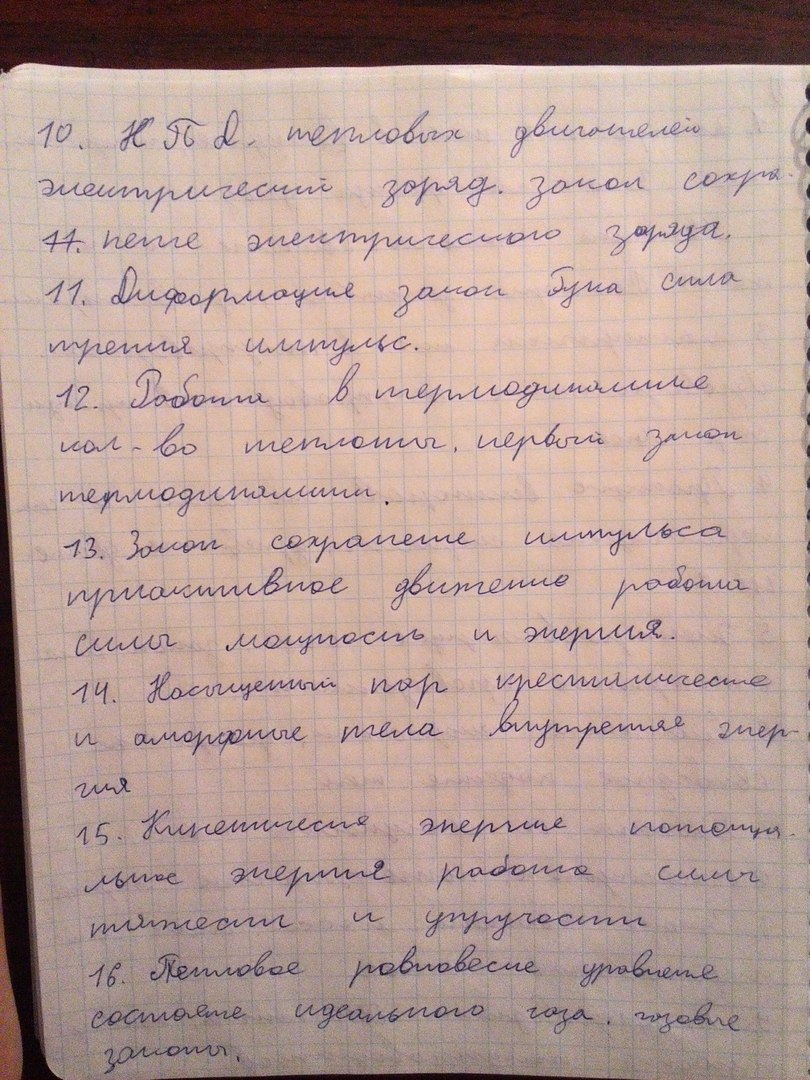 10. КПД. тепловых двигателей
электрический заряд. закон сохра-
11. нение электрического заряда.
11. Диформация закон Гука сила
трения импульс.
12. Работа в термодинамике
кол-во теплоты. первый закон
термодинамики.
13. Закон сохранение импульса
приактивное движение работа
силы мощность и энергия.
14. Насыщенный пар кристаллические
и аморфные тела внутренняя энер-
гия
15. Кинетическая энергия потенциа-
льная энергия работа силы
тяжести и упругости
16. Тепловое равновесие уравнение
состояние идеального газа. газовые
законы.